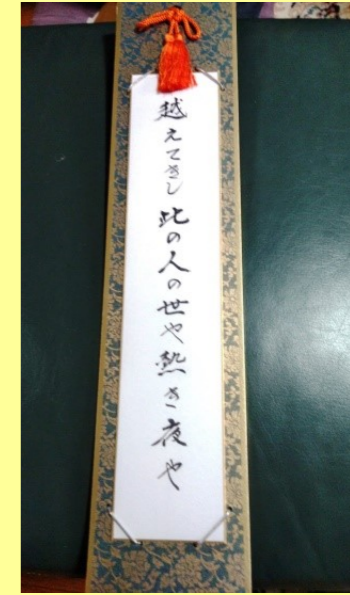 越えてきし此の人の世や熱き夜や